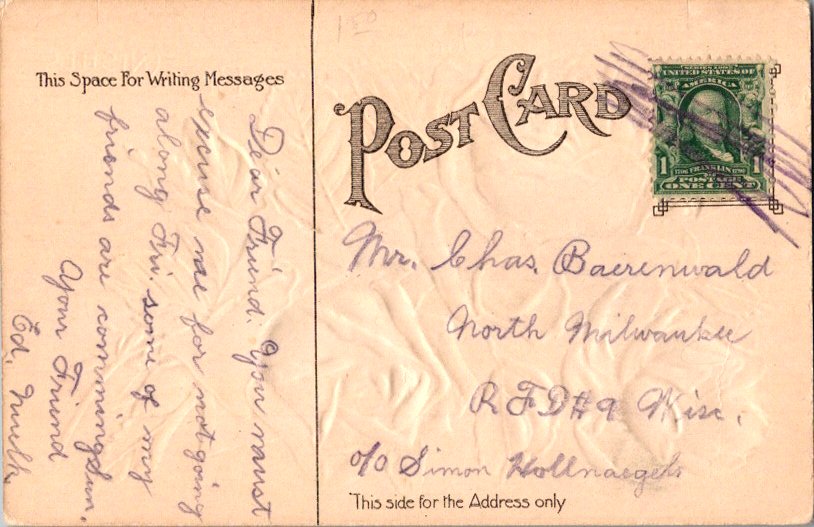 This Space For Writing Messages
POST CARD
SERIES 1902
UNITED STATES OF
AMERICA
1706 FRANKLIN 1790
1 POSTAGE 1
ONE CENT
Dear Friend. You must
excuse me for not going
along Fri. some of my
friends are comming Sun.
Your Friend
Ed.
Mr. Chas. Baerenwald
North Milwaukee
R F D # 9 Wisc.
c/o Simon
This side for the Address only